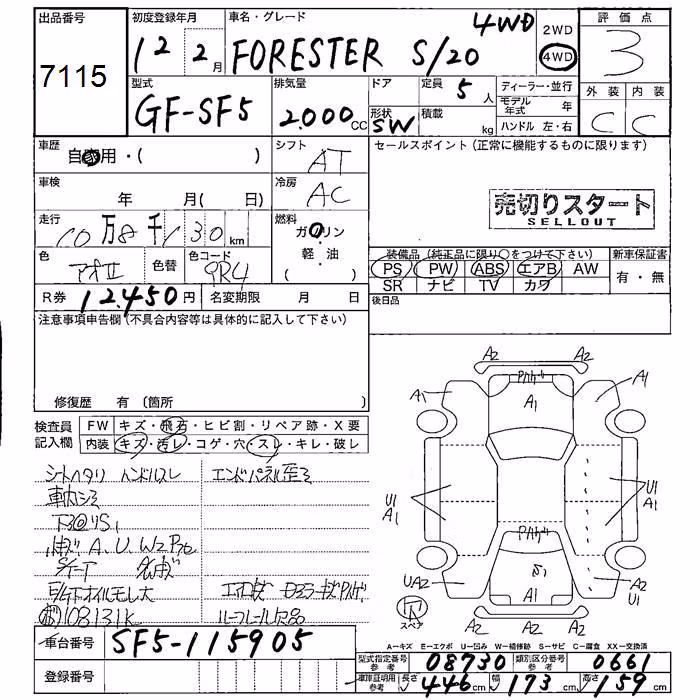 出品番号
7115
初度登録年月
12年2月
車名・グレード
FORESTER S/20
4WD
2WD
4WD
評価点
3
外装 内装
C C
型式
GF-SF5
排気量
2.000 CC
ドア
定員
5人
形状
SW
積載
kg
ディーラー・並行
モデル年式 年
ハンドル 左・右
車歴
自家用・( )
シフト
AT
セールスポイント (正常に機能するものに限ります)
売切りスタート
SELLOUT
車検
年 月( 日)
冷房
AC
走行
10万8千130km
燃料
ガソリン
・
軽・油
( )
色
アオⅡ
色替
色コード
装備品 (純正品に限り○をつけて下さい)
新車保証書
PS PW ABS エアB AW
SR ナビ TV カワ
有・無
R券 12.450円
名変期限 月 日
後日品
注意事項申告欄(不具合内容等は具体的に記入して下さい)
修復歴 有(箇所 )
検査員記入欄
FW キズ・飛石・ヒビ割・リペア跡・X要
内装 キズ・汚レ・コゲ・穴・スレ・キレ・破レ
シートヘタリ ハンドルスレ
エンドパネル歪ミ
車内シミ
下廻りS1
A.U.W2
オイルモレ大
108131K
ルーフレール欠品
A2 A2
A1
A1
A1
U1
A1
U1
A1
UA2
A1
A2
U1
スペア
A2 A2 A2
A-キズ E-エクボ U-凹み W-補修跡 S-サビ C-腐食 XX-交換済
車台番号
SF5-115905
登録番号
型式指定番号 参考
08730
類別区分番号 参考
0661
車庫証明用 参考
長さ 446cm
幅 173cm
高さ 159cm